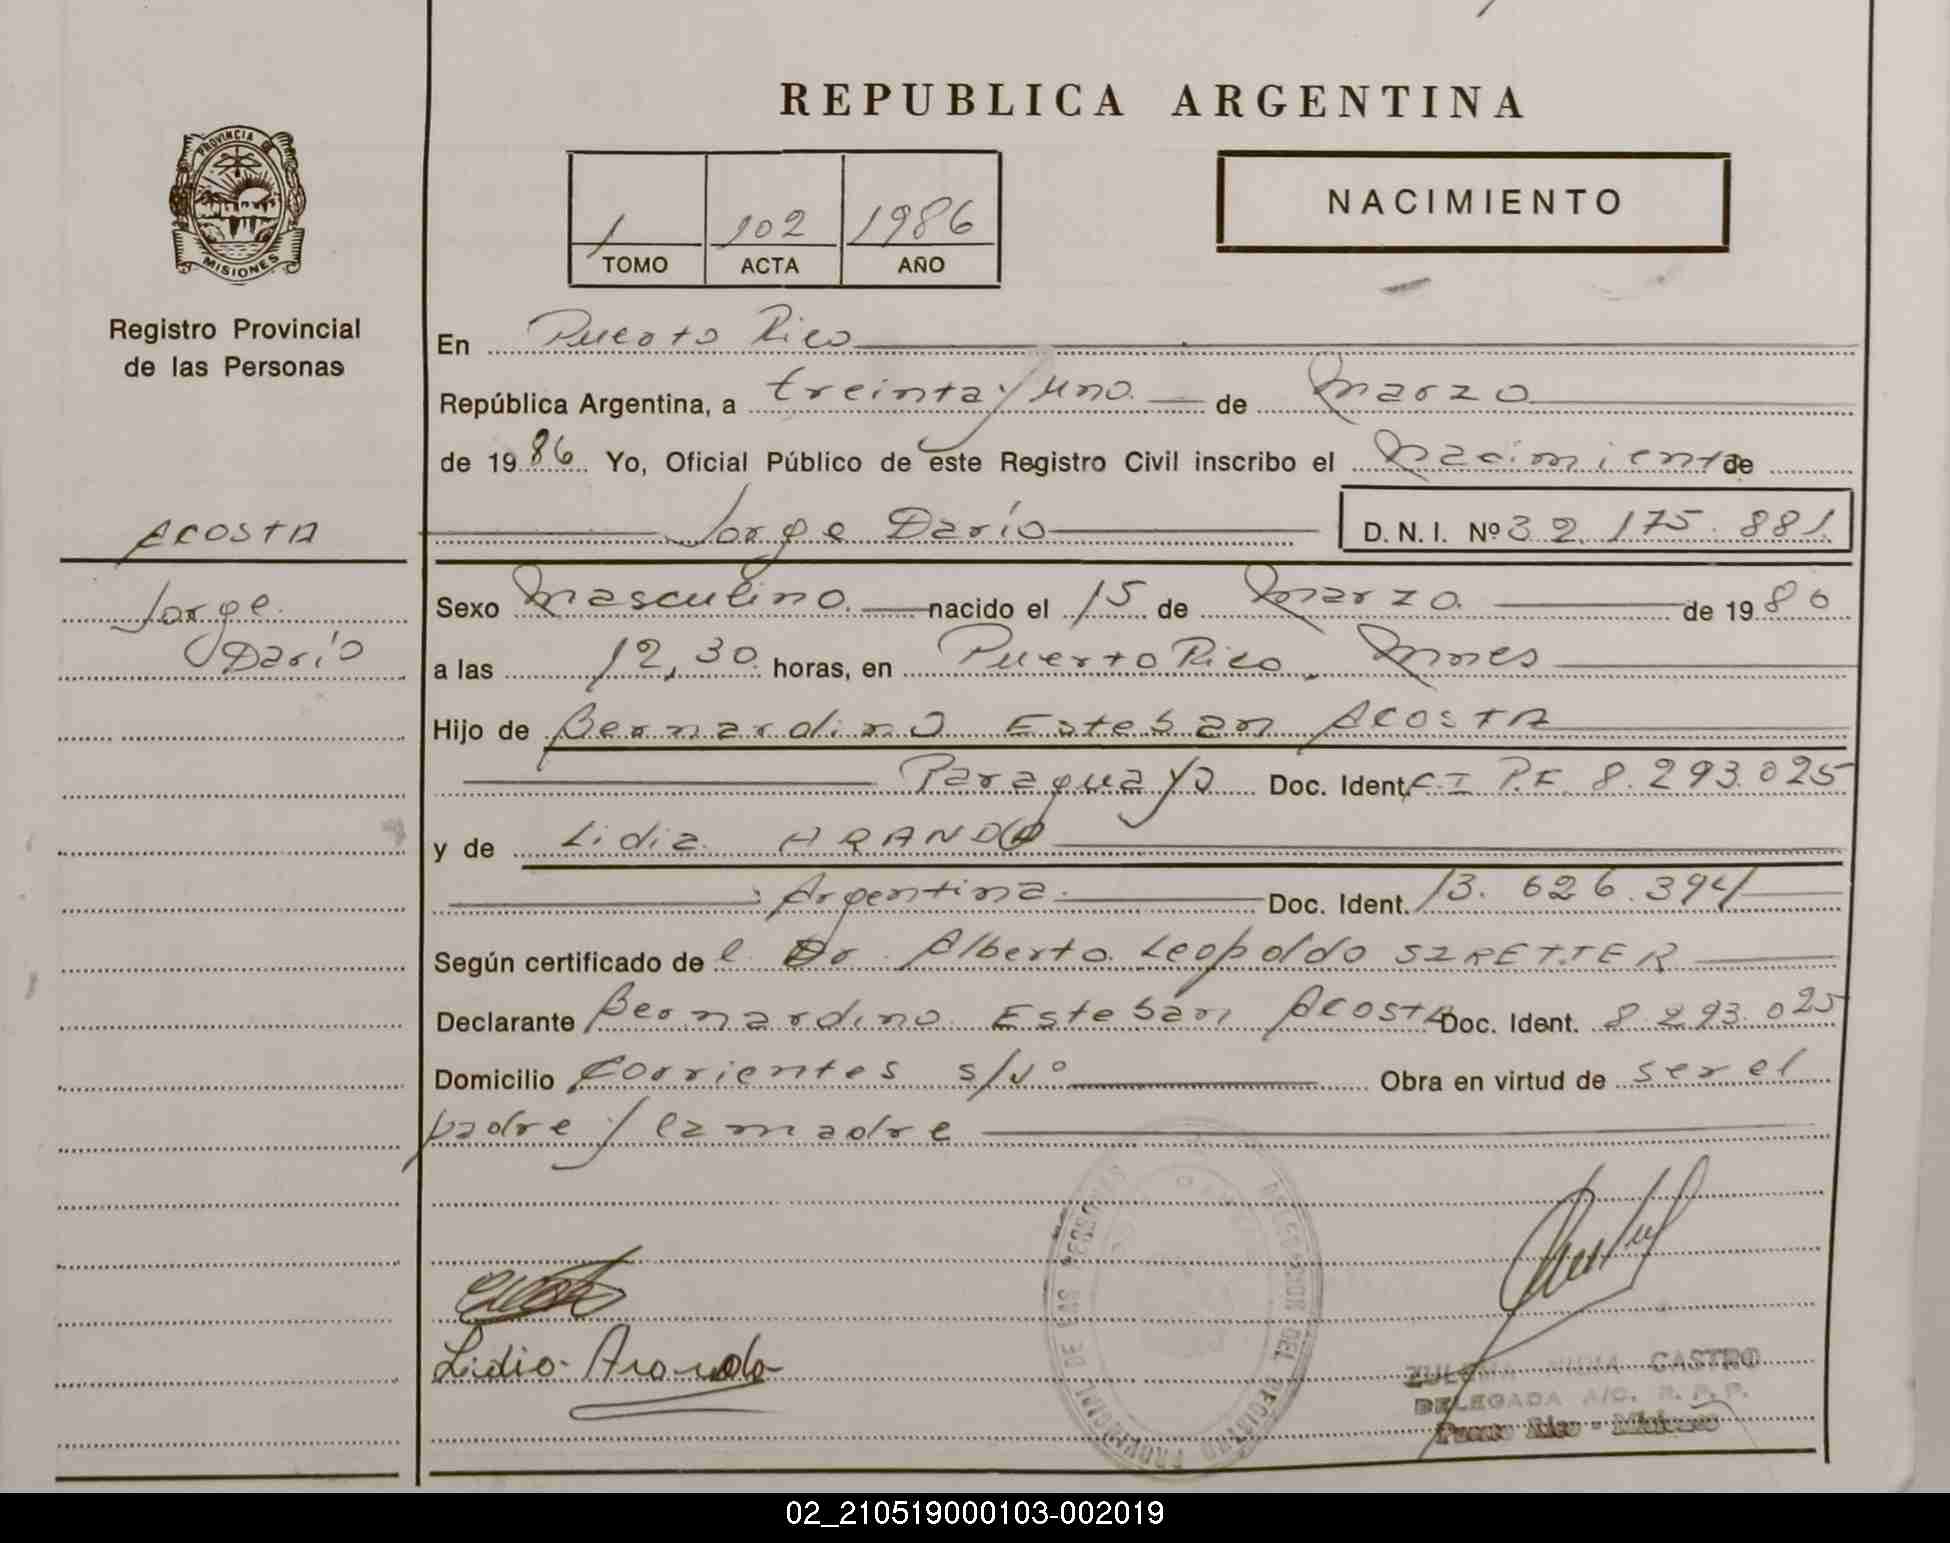 REPUBLICA ARGENTINA
PROVINCIA DE
MISIONES
Registro Provincial
de las Personas
1 102 1986
TOMO ACTA AÑO
NACIMIENTO
En Puerto Rico
República Argentina, a treinta y uno de Marzo
de 1986 Yo, Oficial Público de este Registro Civil inscribo el Nacimiento de
ACOSTA
Jorge Darío D. N. I. Nº 32.175.881
Jorge
Darío
Sexo Masculino nacido el 15 de Marzo de 1986
a las 12,30 horas, en Puerto Rico, Mnes
Hijo de Bernardino Esteban ACOSTA
Paraguayo Doc. Ident. C.I P.F. 8.293.025
y de Lidia ARANDA
Argentina Doc. Ident. 13.626.394
Según certificado del Dr. Alberto Leopoldo SZRETTER
Declarante Bernardino Esteban ACOSTA Doc. Ident. 8.293.025
Domicilio Corrientes s/Nº Obra en virtud de ser el
padre y la madre
Lidia Aranda
DIRECCION DEL REGISTRO PROVINCIAL DE LAS PERSONAS
CASTRO
DELEGADA A/C. R. P. P.
Puerto Rico - Misiones
02_210519000103-002019